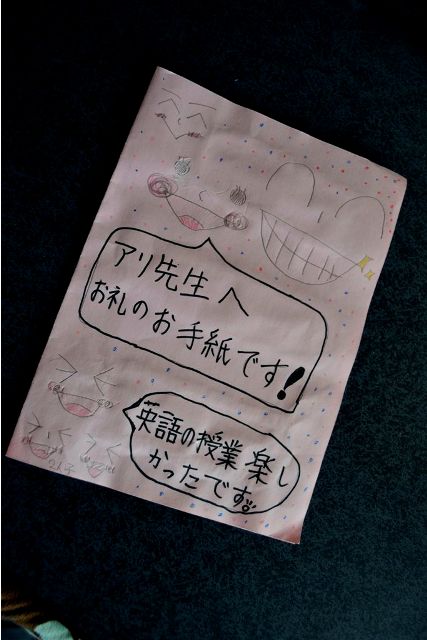 アリ先生へ
お礼のお手紙です!
英語の授業楽し
かったです。